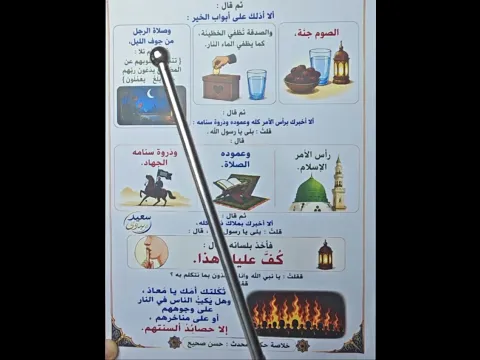 ثم قال :
ألا أدلك على أبواب الخير :
الصوم جنة،
والصدقة تطفي الخطيئة،
كما يطفي الماء النار.
وصلاة الرجل
من جوف الليل،
تلا :
يدعون ربهم
يعملون }
ثم قال :
ألا أخبرك برأس الأمر كله وعموده وذروة سنامه :
قلت : بلى يا رسول الله .
قال :
رأس الأمر
الإسلام.
وعموده
الصلاة.
وذروة سنامه
الجهاد.
ثم قال :
ألا أخبرك بملاك كله،
قلت : بلى يا رسول ، قال :
سعيد
فأخذ بلسانه :
كُفَّ عليك هذا.
فقلت : يا نبي الله وإنا بما نتكلم به ؟
ثكلتك أمك يا معاذ،
وهل يكب الناس في النار
على وجوههم
أو على مناخرهم ،
إلا حصائد ألسنتهم.
خلاصة المحدث : حسن صحيح